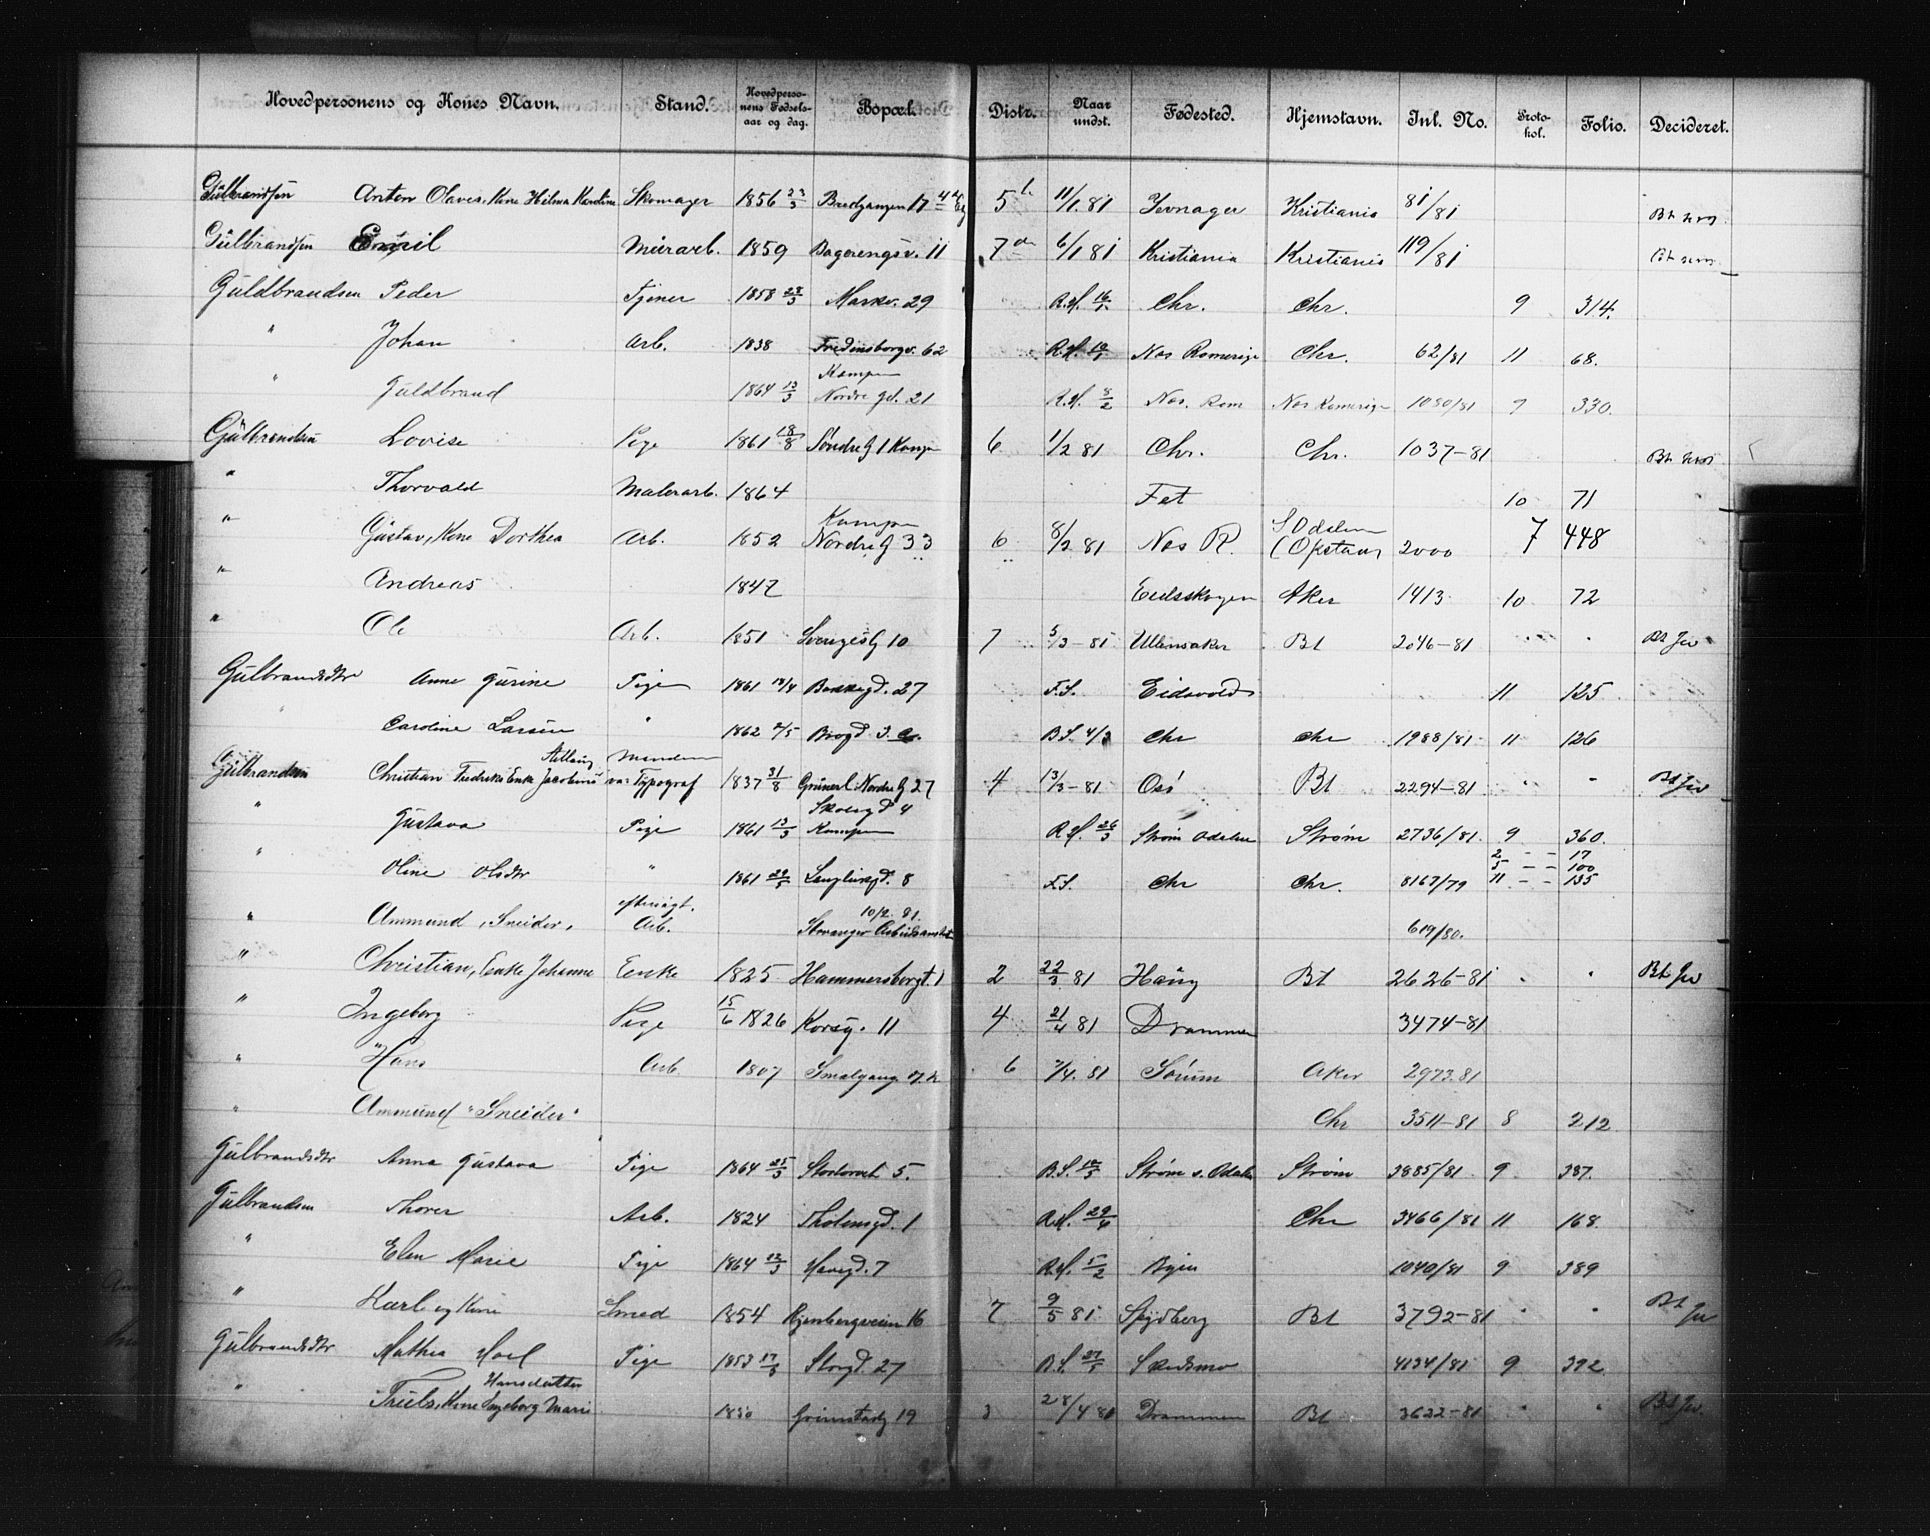 Hovedpersonens og Kones Navn. Stand. Hovedperso-nens Fødsels-aar og dag. Bopæl. Distr. Naar undst. Fødested. Hjemstavn. Inl. No. Proto-kol. Folio. Decideret.
Gulbrandsen Anton Olaves, Kone Hilma Karoline Skomager 1856 23/3 Bredgangen 17 5 11/1 81 Jevnager Kristiania 81/81
Gulbrandsen Emil Murarb. 1859 11 7 6/1 81 Kristiania Kristiania 119/81
Guldbrandsen Peder Tjener 1858 23/3 Markv. 29 R.H. Chr. Chr. 9 314.
" Johan Arb. 1838 Fredensborgv. 62 R.H. Nes Romerige Chr. 62/81 11 68.
" Guldbrand 1864 13/3 Kampen Nordre gd. 21 R.H. 8/2 Nes. Rom Nes Romerige 1030/81 9 330.
Gulbrandsen Lovise Pige 1861 18/8 Søndre G 1 Kampen 6 1/2 81 Chr. Chr. 1037-81
" Thorvald Malerarb. 1864 Fet 10 71
" Gustav, Kone Dorthea Arb. 1852 Kampen Nordre G 33 6 8/2 81 Nes R. S Odalen (Opstad) 2000 7 448
" Andreas 1847 Eidsskogen Aker 1413 10 72
" Ole Arb. 1851 Sverigesg 10 7 5/3-81 Ullensaker Bt 2046-81 Bt
Gulbrandsdtr Anne Gurine Pige 1861 Bakkegd. 27 F.S. Eidsvold 11 125
" Caroline Larsen " 1862 2/5 Brogd. 3. B.S. 4/3 Chr Chr 1988/81 11 126
Gulbrandsen Christian Fredrik Enke Jacobine Manden var Typograf 1837 31/8 Grünerl. Nordre G 27 4 13/3-81 Osö Bt 2294-81
" Gustava Pige 1861 13/3 Skolegd 4 Kampen R.H. 26/3 Strøm Odalen Strøm 2736/81 9 360.
" Oline Olsdtr " 1861 29/5 8 F.S. Chr Chr. 8167/79 2 - - 17 5 - - 100 11 - - 135
" Ammund "Sneider" eftersøgt. Arb. 10/2 81. Stavanger Arbeidsanstalt 619/80.
" Christian, Enke Johanne Enke 1825 Hammersborgt. 1 2 22/3 81 Haug Bt 2626-81 Bt
" Ingeborg Pige 15/6 1826 Korsg. 11 4 21/4 81 Drammen 3474-81
" Hans Arb. 1807 Smalgang 6 7/4. 81 Sørum Aker 2973.81
" Ammund "Sneider" Chr 3511-81 8 212
Gulbrandsdtr Anna Gustava Pige 1864 25/3 Stortorvet 5. B.S. Strøm s. Odalen Strøm 3885/81 9 387.
Gulbrandsen Thorer Arb. 1824 1 R.H. 29/4 Chr 3466/81 11 168.
" Elen Marie Pige 1864 12/3 Havegd. 7 R.H. 5/2 Byen 1040/81 9 389
" Karl og Kone Smed 1854 Ryenbergveien 16 7 9/5 81 Spydberg Bt 3792-81 Bt
Gulbrandsdtr Mathea Hoel Pige 1853 17/3 Storgd. 27 B.S. 27/5 Skedsmo 4134/81 9 392
" Truls, Kone Ingeborg Marie Hansdatter 1830 Grimstadg 19 3 28/4 81 Drammen Bt 3622-81 Bt